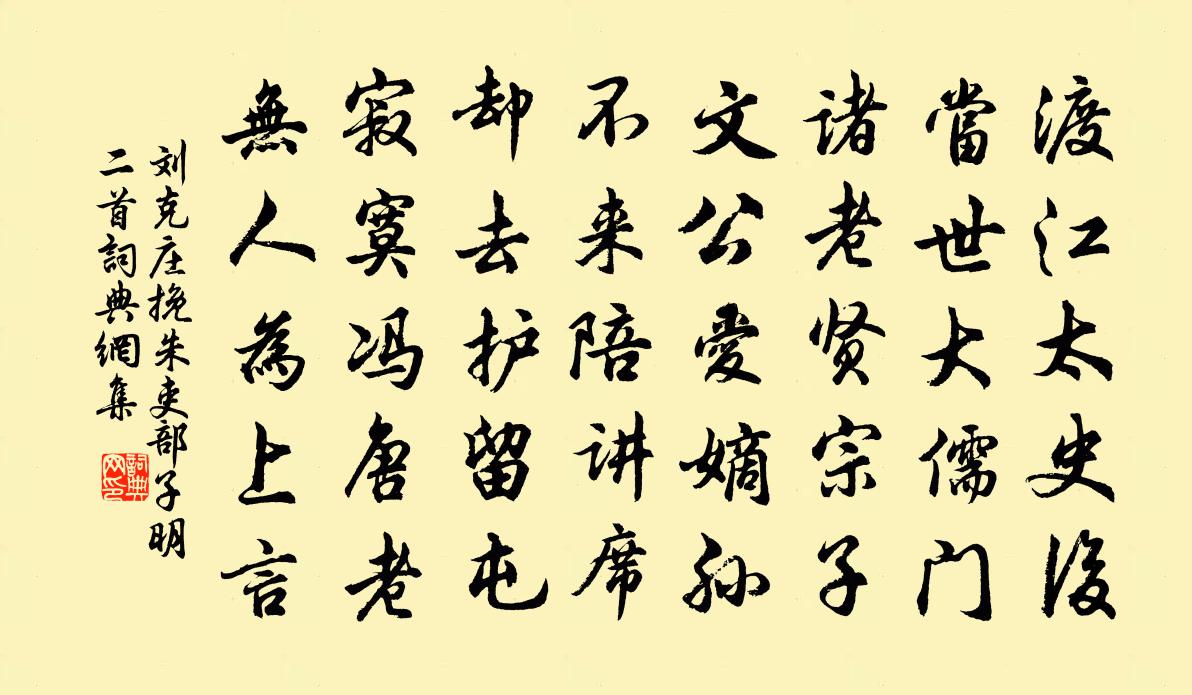 渡江太史後
當世大儒门
诸老贤宗子
文公愛嫡孙
不来陪讲席
却去护留屯
寂寞冯唐老
無人為上言
刘克庄挽朱吏部子明
二首詞典網集
詞典
网印